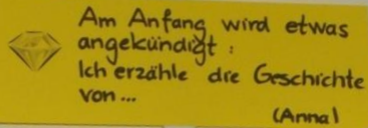 Am Anfang wird etwas
angekündigt:
Ich erzähle die Geschichte
von...
(Anna)